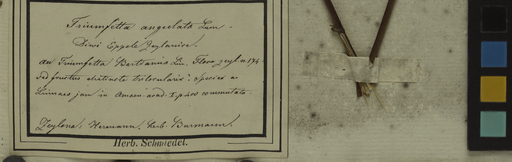 Triumfetta angulata Lam.
Diwi Eppele Zeylanice
an Triumfetta Bartramia Lin. Flora zeyl. n. 174
Sed fructus distincte trilocularis: Species a
Linnaeo jam in Amoen. acad. I. p. 400 commutata.
Zeylona. Hermann, herb. Burmann.
Herb. Schmiedel.